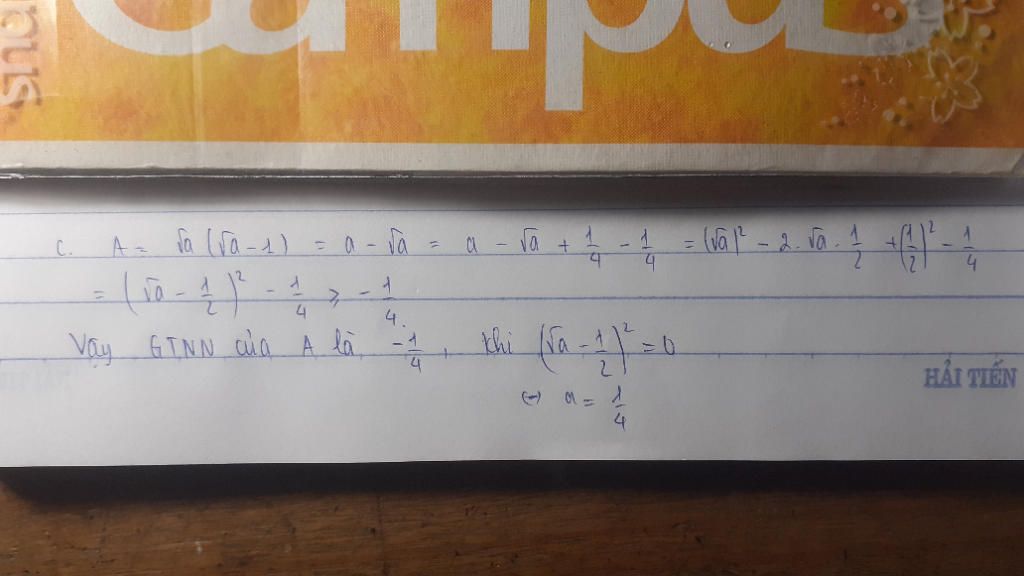 Campus
c. A = √a (√a - 1) = a - √a = a - √a + 1/4 - 1/4 = (√a)² - 2.√a.1/2 + (1/2)² - 1/4
= (√a - 1/2)² - 1/4 ⩾ -1/4.
Vậy GTNN của A là -1/4, khi (√a - 1/2)² = 0
HẢI TIẾN
(-) a = 1/4